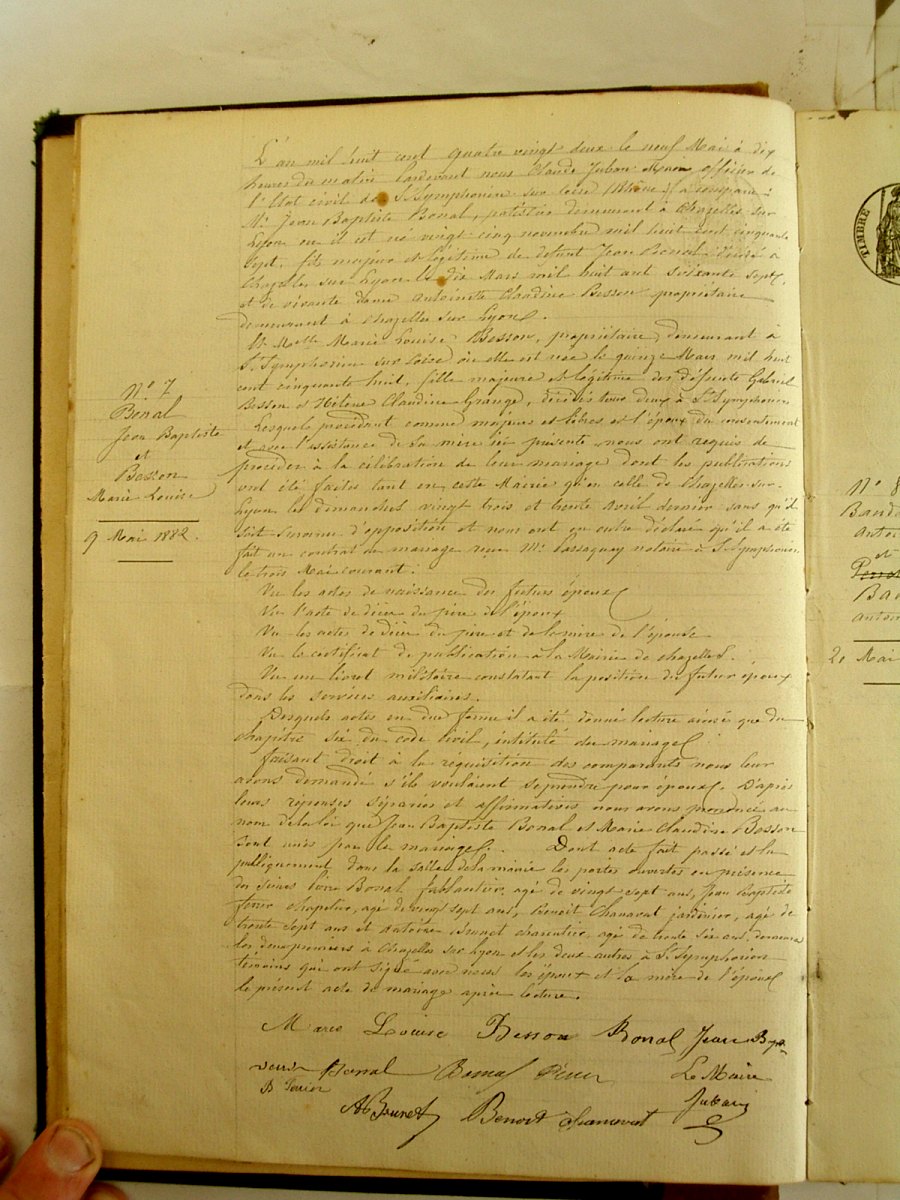 L'an mil huit cent quatre vingt deux le neuf Mai à dix
heures du matin Pardevant nous Claude Maire officier de
l'Etat civil de St Symphorien sur a comparu
Mr Jean Baptiste Bonal, demeurant à Chazelles sur
Lyon où il est né vingt cinq novembre mil huit cent cinquante
sept, fils majeur et légitime de défunt Jean Bonal décédé à
Chazelles sur Lyon le dix Mars mil huit cent soixante sept
et de vivante dame Antoinette Claudine Besson propriétaire
demeurant à Chazelles sur Lyon.
Et Melle Marie Louise Besson, propriétaire, demeurant à
St Symphorien sur où elle est née le quinze Mars mil huit
cent cinquante huit, fille majeure et légitime des défunts Gabriel
Besson et Hélène Claudine Grange, décédés tous deux à St Symphorien
Lesquels procédant comme majeurs et libres et l'époux du consentement
et avec l'assistance de sa mère ici présente, nous ont requis de
procéder à la célébration de leur mariage dont les publications
ont été faites tant en cette Mairie qu'en celle de Chazelles-sur-
Lyon les dimanches vingt trois et trente Avril dernier sans qu'il
soit survenu d'opposition et nous ont en outre déclaré qu'il a été
fait un contrat de mariage reçu Me notaire à St Symphorien
le trois Mai courant.
Vu les actes de naissance des futurs époux
Vu l'acte de décès du père de l'époux
Vu les actes de décès du père et de la mère de l'épouse
Vu le certificat de publication à la Mairie de Chazelles.
Vu un livret militaire constatant la position du futur époux
dans les services auxiliaires.
Desquels actes en due forme il a été donné lecture ainsi que du
chapitre six du code civil, intitulé du mariage
faisant droit à la requisition des comparants nous leur
avons demandé s'ils voulaient se prendre pour époux. D'après
leurs réponses séparées et affirmatives nous avons prononcé au
nom de la loi que Jean Baptiste Bonal et Marie Claudine Besson
sont unis par le mariage. Dont acte fait passé et lu
publiquement dans la salle de la mairie les portes ouvertes en présence
des sieurs Bonal agé de vingt sept ans, Jean Baptiste
chapelier, agé de vingt sept ans, Benoit jardinier, agé de
trente sept ans et Antoine Brunet charpentier, agé de trente six ans, demeurant
les deux premiers à Chazelles sur Lyon et les deux autres à St Symphorien
témoins qui ont signé avec nous les époux et la mère de l'époux
le présent acte de mariage après lecture.
No 7
Bonal
Jean Baptiste
et
Besson
Marie Louise
9 Mai 1882.
Marie Louise Besson Bonal Jean Bte
Bonal Bonal Le Maire
Brunet Benoit
TIMBRE
No 8
et
20 Mai